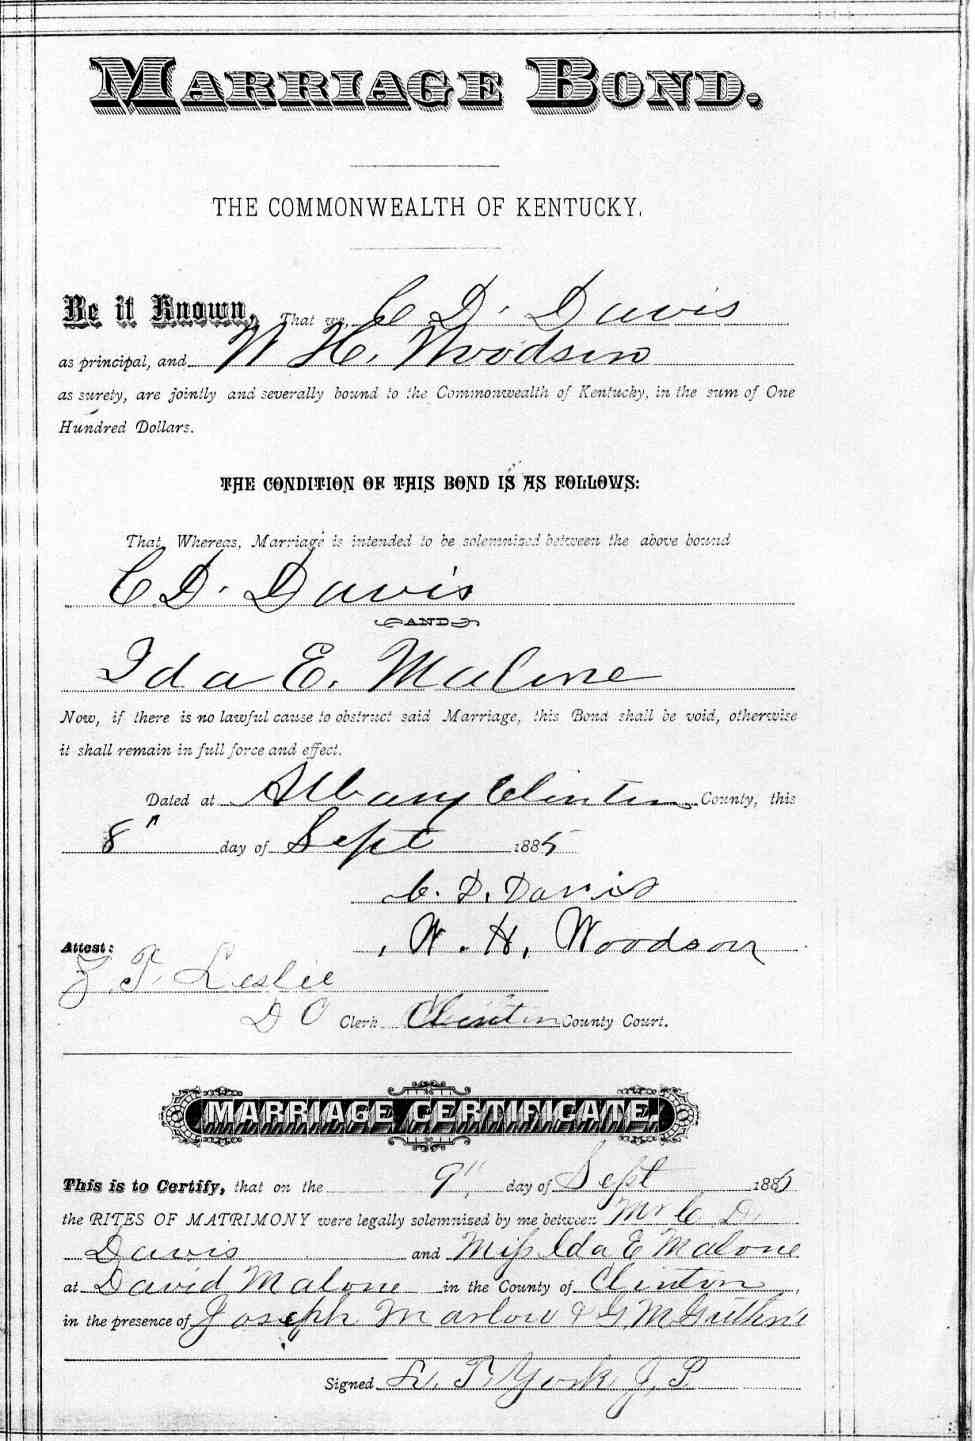 MARRIAGE BOND.
THE COMMONWEALTH OF KENTUCKY.
Be it Known, That we, C D. Davis
as principal, and W H. Woodson
as surety, are jointly and severally bound to the Commonwealth of Kentucky, in the sum of One
Hundred Dollars.
THE CONDITION OF THIS BOND IS AS FOLLOWS:
That, Whereas, Marriage is intended to be solemnized between the above bound
C. D. Davis
AND
Ida E. Malone
Now, if there is no lawful cause to obstruct said Marriage, this Bond shall be void, otherwise
it shall remain in full force and effect.
Dated at Albany Clinton County, this
8" day of Sept 1885
C. D. Davis
W. H. Woodson
Attest:
T. Leslie
D C Clerk Clinton County Court.
MARRIAGE CERTIFICATE.
This is to Certify, that on the 9" day of Sept 1885
the RITES OF MATRIMONY were legally solemnized by me between Mr C D.
Davis and Miss Ida E Malone
at David Malone in the County of Clinton,
in the presence of Joseph Marlow & G. M Guthrie
Signed T. York J. P.